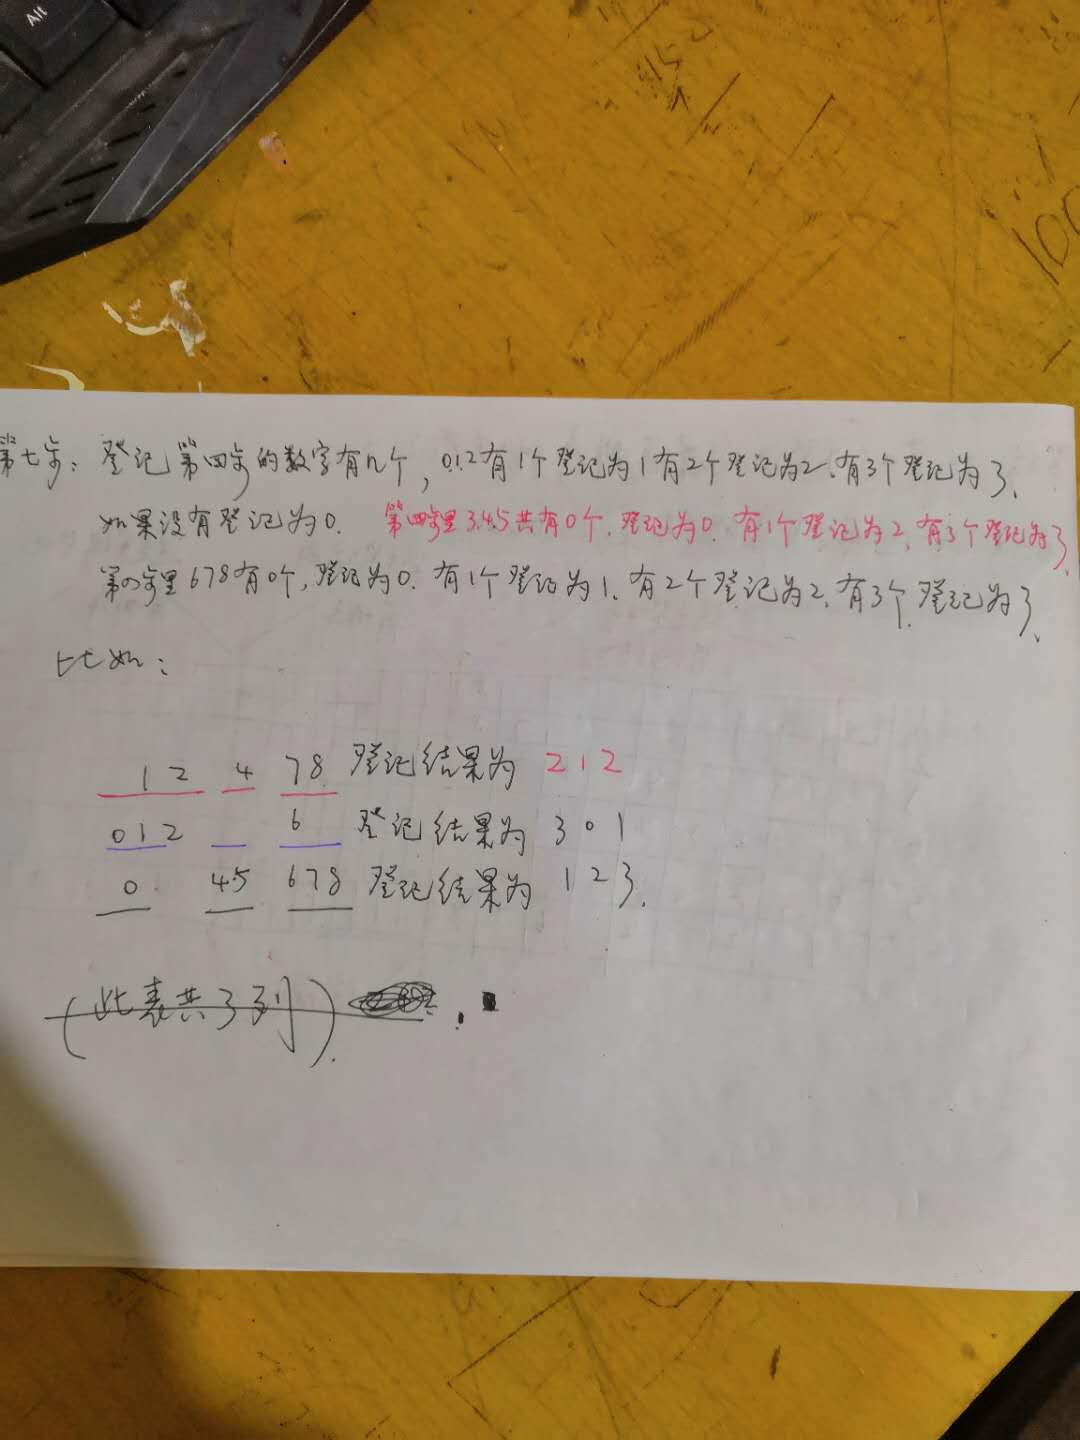 Alt
第七步：登记第四步的数字有几个，0.1.2有1个登记为1有2个登记为2、有3个登记为3、
如果没有登记为0. 第四步里3.4.5共有0个，登记为0. 有1个登记为2、有3个登记为3
第四步里678有0个，登记为0. 有1个登记为1. 有2个登记为2、有3个登记为3、
比如：
12 4 78 登记结果为 212
012 6 登记结果为 301
0 45 678 登记结果为 123.
(此表共3列).
100